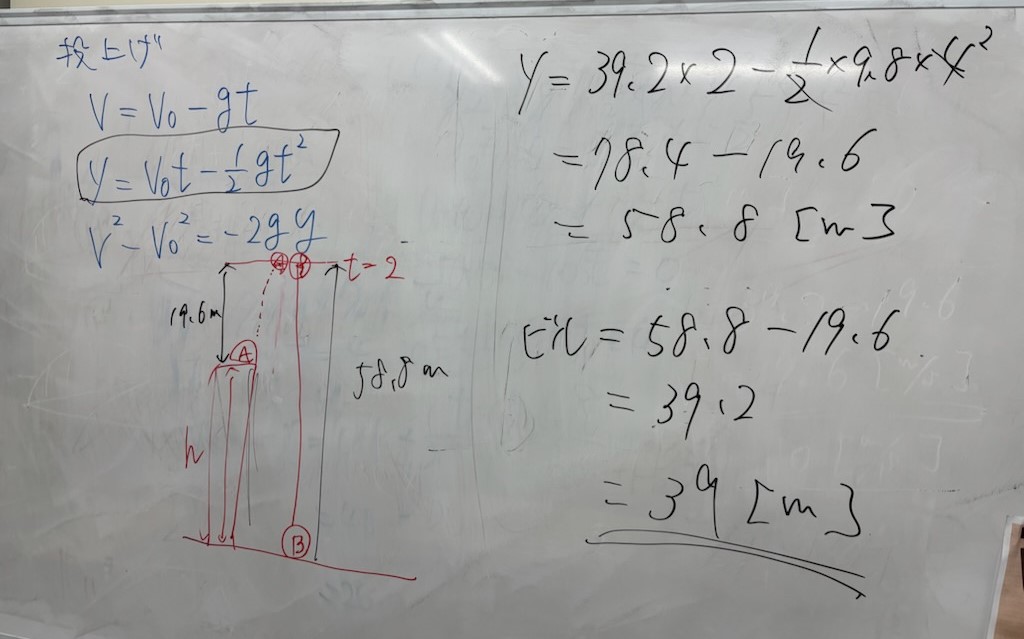 投上げ
V = V₀ - gt
y = V₀t - 1/2 gt²
V² - V₀² = -2gy
t = 2
19.6m
A
58.8m
h
B
y = 39.2 × 2 - 1/2 × 9.8 × 4²
= 78.4 - 19.6
= 58.8 [m]
ビル = 58.8 - 19.6
= 39.2
= 39 [m]